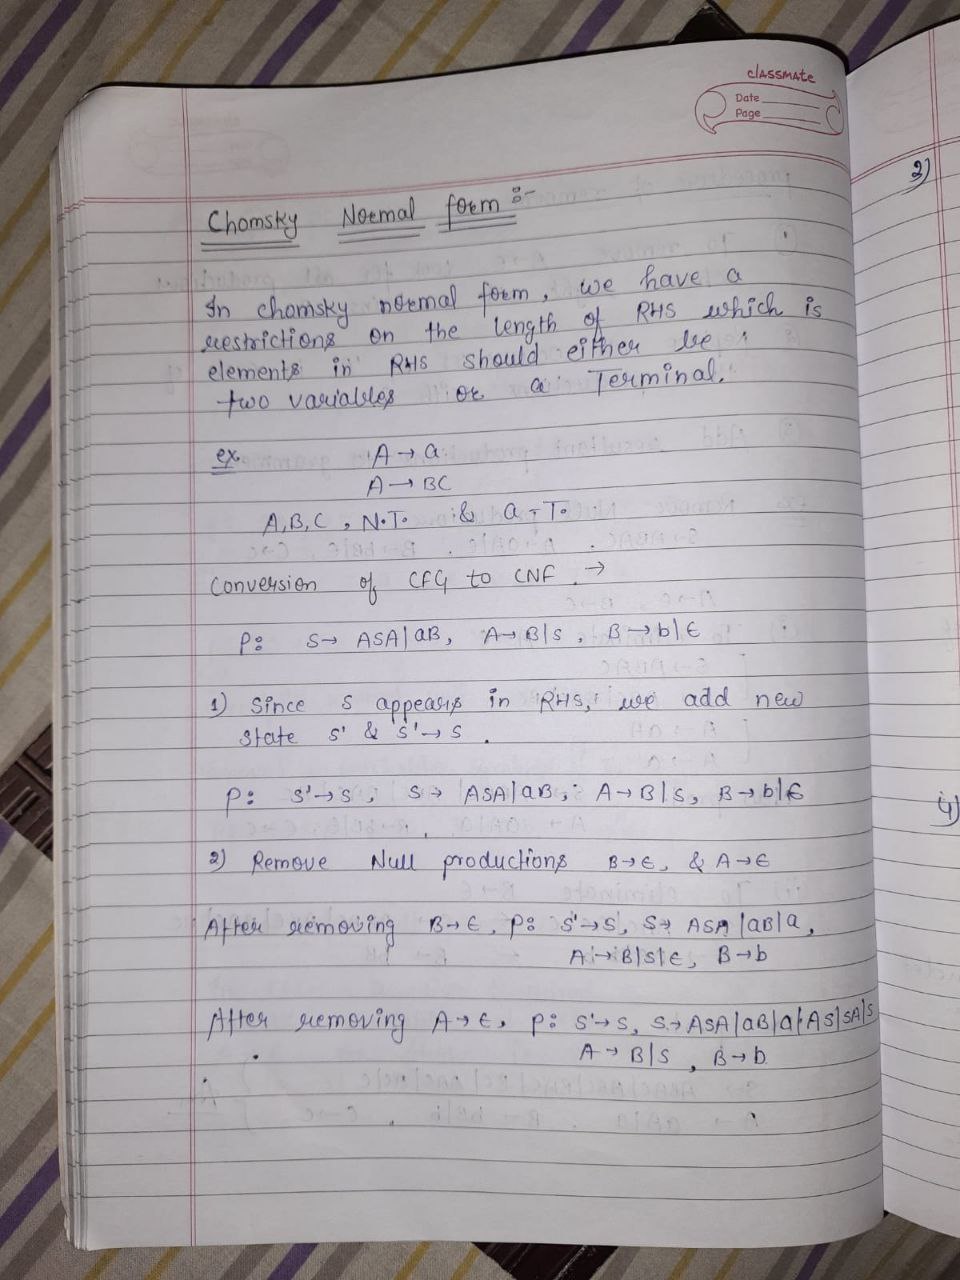 classmate
Date
Page
Chomsky Normal form :-
In chomsky normal form, we have a
restrictions on the length of RHS which is
elements in RHS should either be
two variables or a Terminal.
ex. A → a
A → BC
A, B, C, N.T. & a - T.
Conversion of CFG to CNF. →
P: S → ASA | aB, A → B|S, B → b|ϵ
1) Since S appears in RHS, we add new
state S' & S' → S.
P: S' → S, S → ASA|aB, A → B|S, B → b|ϵ
2) Remove Null productions B → ϵ, & A → ϵ
After removing B → ϵ, P: S' → S, S → ASA |aB|a,
A → B|S|ϵ, B → b
After removing A → ϵ, P: S' → S, S → ASA|aB|a|AS|SA|S
A → B|S, B → b
3)
4)